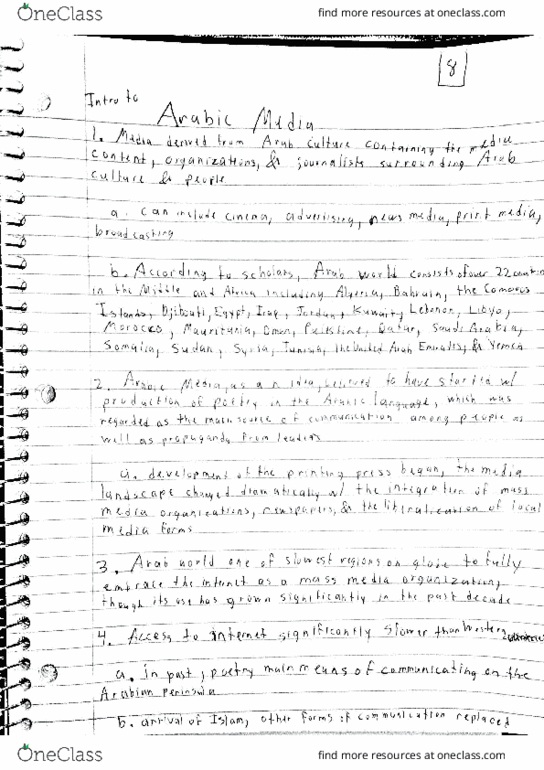 OneClass
find more resources at oneclass.com
8
Intro to
Arabic Media
1. Media derived from Arab culture containing the media
content, organizations, & journalists surrounding Arab
culture & people
a. can include cinema, advertising, news media, print media,
broadcasting
b. According to scholars, Arab world consists of over 22
in the Middle and Africa including Algeria, Bahrain, the Comoros
Islands, Djibouti, Egypt, Iraq, Jordan, Kuwait, Lebanon, Libya,
Morocco, Mauritania, Oman, Palestine, Qatar, Saudi Arabia,
Somalia, Sudan, Syria, Tunisia, the United Arab Emirates, & Yemen
2. Arabic Media, as an idea, believed to have started w/
production of poetry in the Arabic language, which was
regarded as the main source of communication among people as
well as propaganda from leaders
a. development of the printing press began, the media
landscape changed dramatically w/ the integration of mass
media organizations, newspapers, & the liberalization of local
media forms
3. Arab world one of slowest regions on globe to fully
embrace the internet as a mass media organization,
though its use has grown significantly in the past decade
4. Access to internet significantly slower than Western
a. in past, poetry main means of communicating on the
Arabian peninsula
b. arrival of Islam, other forms of communication replaced
OneClass
find more resources at oneclass.com